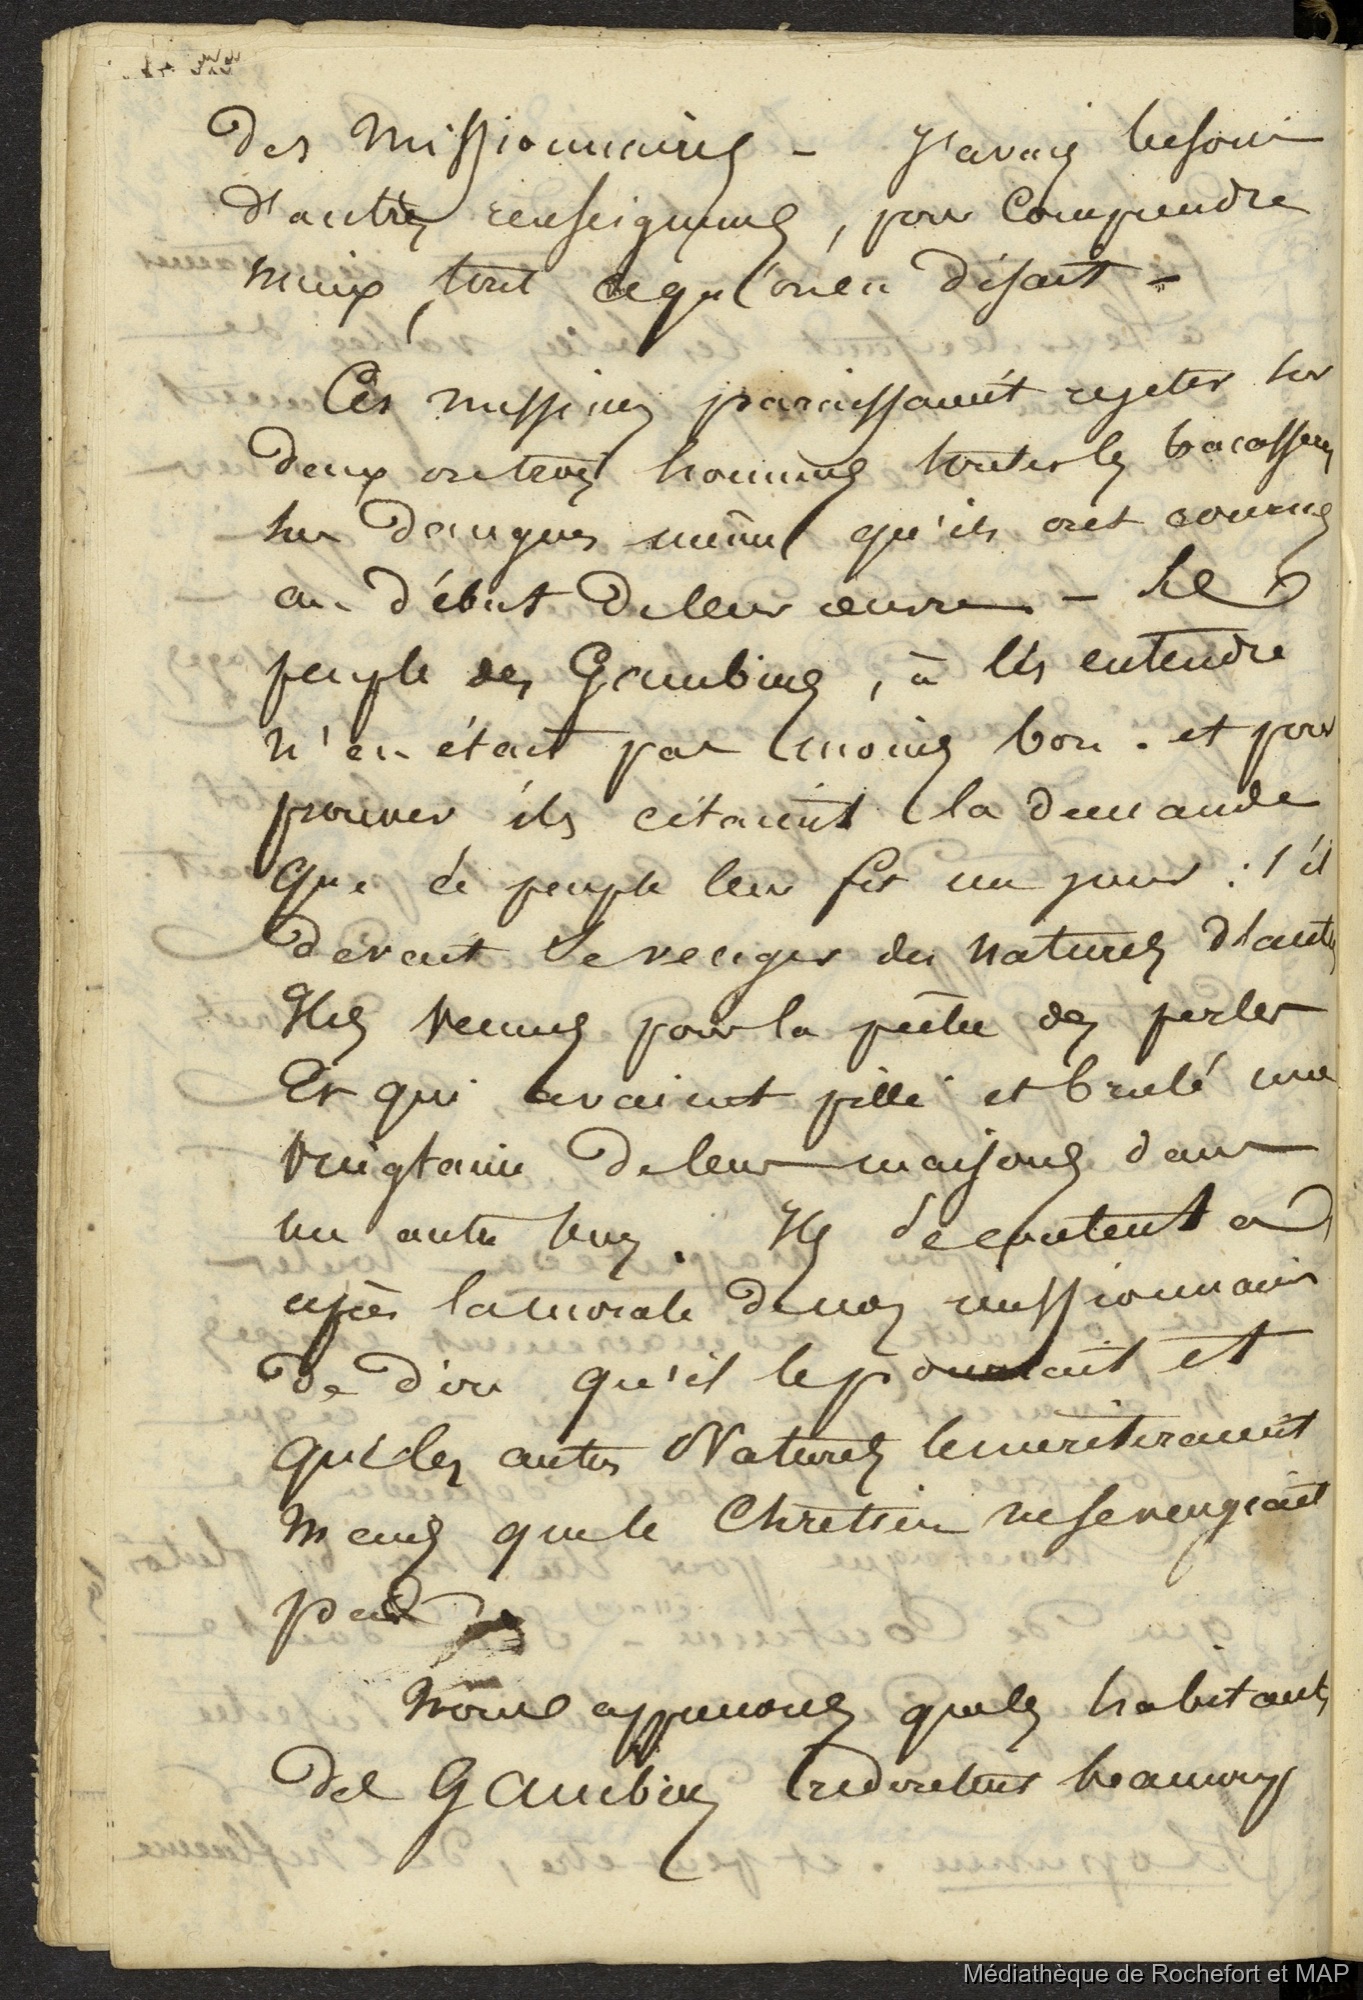 des Missionnaires - J'avais besoin
d'autres renseignemens, pour comprendre
mieux tout ce qu'on en disait -
Ces missions paraissaient rejeter sur
deux ou trois hommes toutes les tracasseries
les dangers même qu'ils ont courus
au début de leur œuvre - Le
peuple des Gambiers, à les entendre
n'en était pas moins bon. et pour
prouver ils citaient la demande
que ce peuple leur fit un jour : s'il
devait se venger des naturels d'autres
Iles venus pour la pêche des perles
Et qui avaient pillé et brulé une
vingtaine de leurs maisons dans
un autre . Ils decontent a
après la morale de nos missionnaires
de Dieu qu'il le pourrait et
que les autres Naturels le meriteraient
Mais que le Chretien ne se vengeait
pas
Nous apprenons que les habitants
de Gambier redoutent beaucoup
Médiathèque de Rochefort et MAP